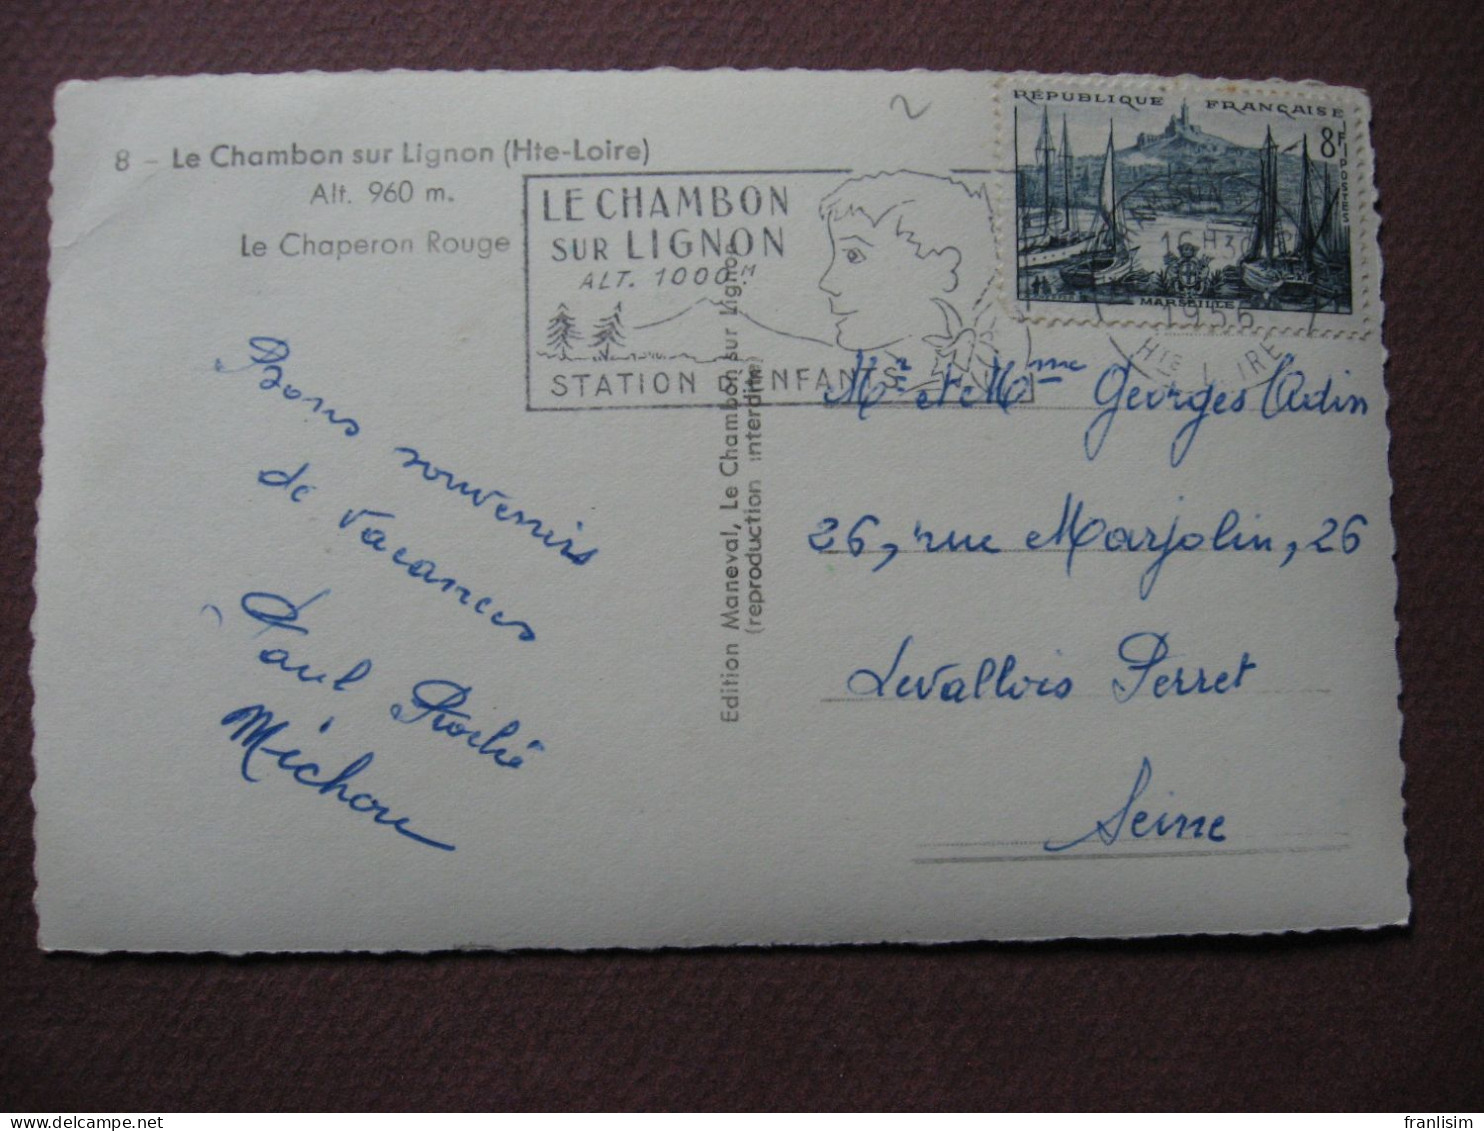 2
8 - Le Chambon sur Lignon (Hte-Loire)
Alt. 960 m.
Le Chaperon Rouge
LE CHAMBON
SUR LIGNON
ALT. 1000 M
STATION D'ENFANTS
RÉPUBLIQUE FRANÇAISE
8F
POSTES
MARSEILLE
16 H 30
1956
Hte LOIRE
Bons souvenirs
de vacances
Paul Roché
Méchou
Edition Maneval, Le Chambon sur Lignon
(reproduction interdite)
Mr et Mme Georges Audin
26, rue Marjolin, 26
Levallois Perret
Seine
franlisim